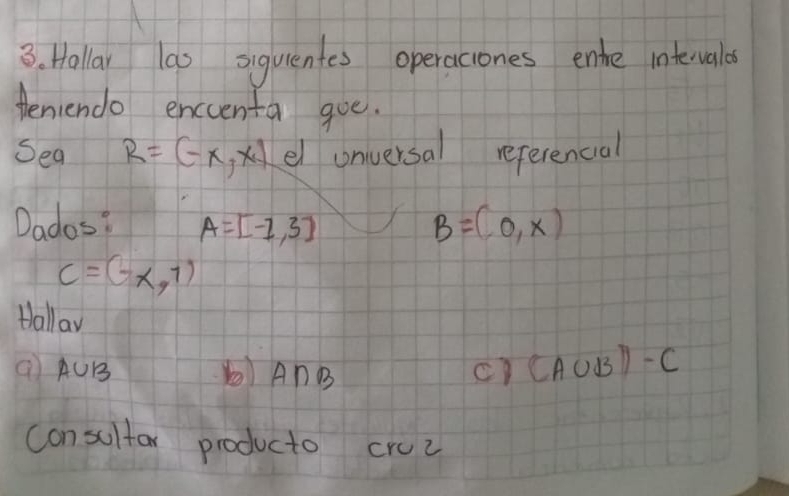 3. Hallar las siguientes operaciones entre intervalos
teniendo encuenta que.
Sea R = (-x, x) el universal referencial
Dados: A = [-1,3] B = (0, x)
C = (-x, 1)
Hallar
a) A∪B b) A∩B c) (A∪B) - C
Consultar producto cruz